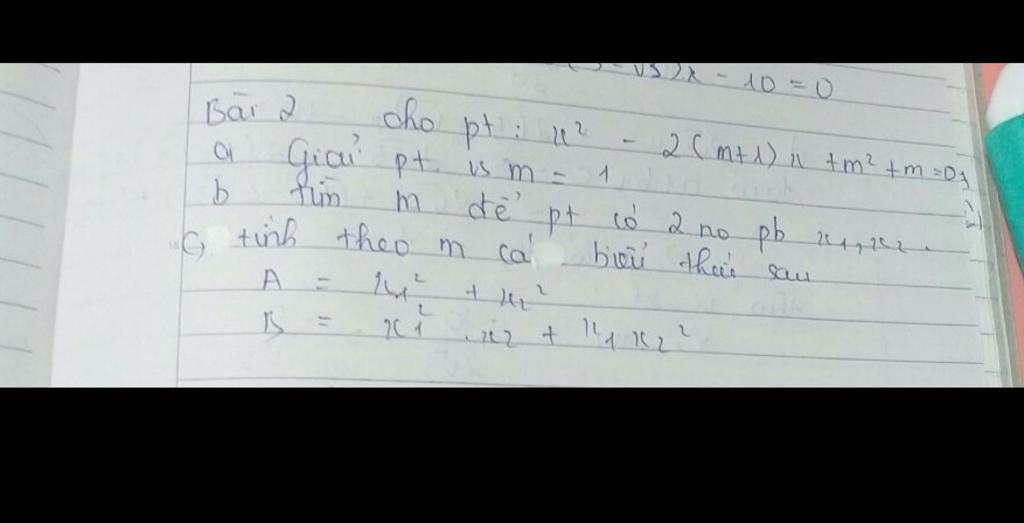 √3)x - 10 = 0
Bài 2 cho pt : x² - 2(m+1)x + m² + m = 0
a Giải pt vs m = 1
b tìm m để pt có 2 no pb x₁, x₂.
c, tính theo m cá biểu thức sau
A = x₁² + x₂²
B = x₁² . x₂ + x₁ x₂²